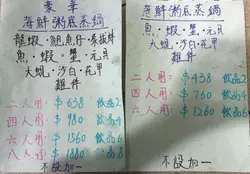 豪華
海鮮粥底蒸鍋
龍蝦・鮑魚仔・象拔蚌
魚・蝦・蟹・元貝
大蜆・沙白・花甲
雞件
二人用：$638 飲品2
四人用：$980 飲品4
六人用：$1560 飲品6
八人用：$1880 飲品8
不設加一
海鮮粥底蒸鍋
魚・蝦・蟹・元貝
大蜆・沙白・花甲
雞件
二人用：$438 飲品2
四人用：$760 飲品4
六人用：$1260 飲品6
不設加一